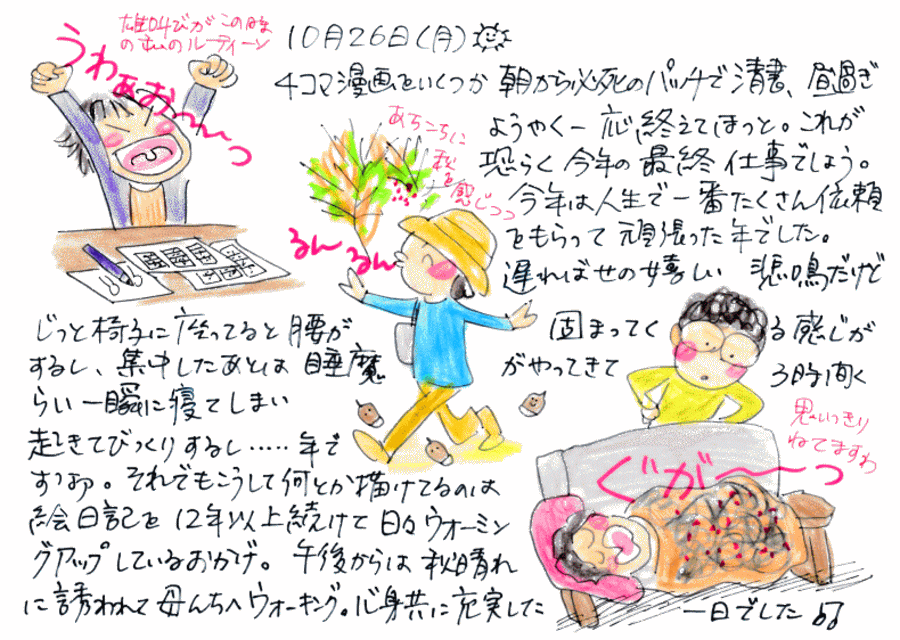 雄叫びが この時
のルーティーン
うわぁおー〜っ
10月26日(月)
4コマ漫画をいくつか 朝から必死のパッチで清書、昼過ぎ
ようやく一応終えてほっと。これが
恐らく今年の最終仕事でしょう。
今年は人生で一番たくさん依頼
をもらって頑張った年でした。
遅ればせの嬉しい 悲鳴だけど
あちこちに
秋を感じつつ
るんーるん
じっと椅子に座ってると腰が 固まってく る感じが
するし、集中したあとは睡魔 がやってきて 3時間く
らい一瞬に寝てしまい
起きてびっくりするし……年で
すなぁ。それでもこうして何とか描けてるのは
絵日記を12年以上続けて日々ウォーミン
グアップしているおかげ。午後からは秋晴れ
に誘われて母んちへウォーキング。心身共に充実した 一日でした
思いっきり
ねてますわ
ぐがー〜っ